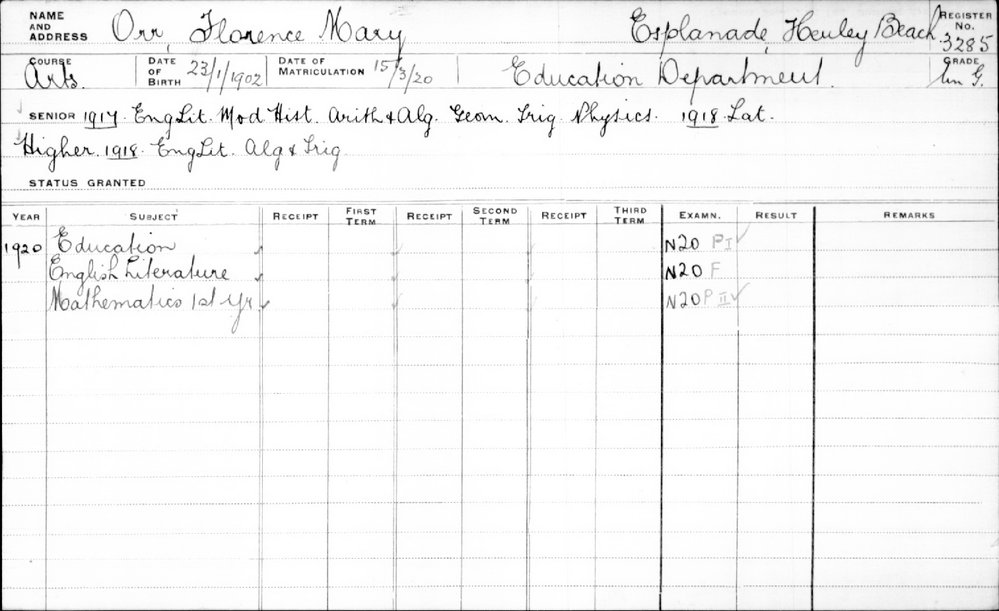 NAME AND ADDRESS Orr, Florence Mary Esplanade, Henley Beach REGISTER No. 3285
COURSE Arts. DATE OF BIRTH 23/1/1902 DATE OF MATRICULATION 15/3/20 Education Department. GRADE G.
SENIOR 1917. Eng Lit. Mod Hist. Arith & Alg. Geom. Trig. Physics. 1918. Lat.
Higher. 1918. Eng Lit. Alg & Trig
STATUS GRANTED
YEAR SUBJECT RECEIPT FIRST TERM RECEIPT SECOND TERM RECEIPT THIRD TERM EXAMN. RESULT REMARKS
1920 Education ✓ ✓ ✓ N20 P I ✓
English Literature ✓ ✓ ✓ N20 F
Mathematics 1st Yr ✓ ✓ ✓ N20 P II ✓